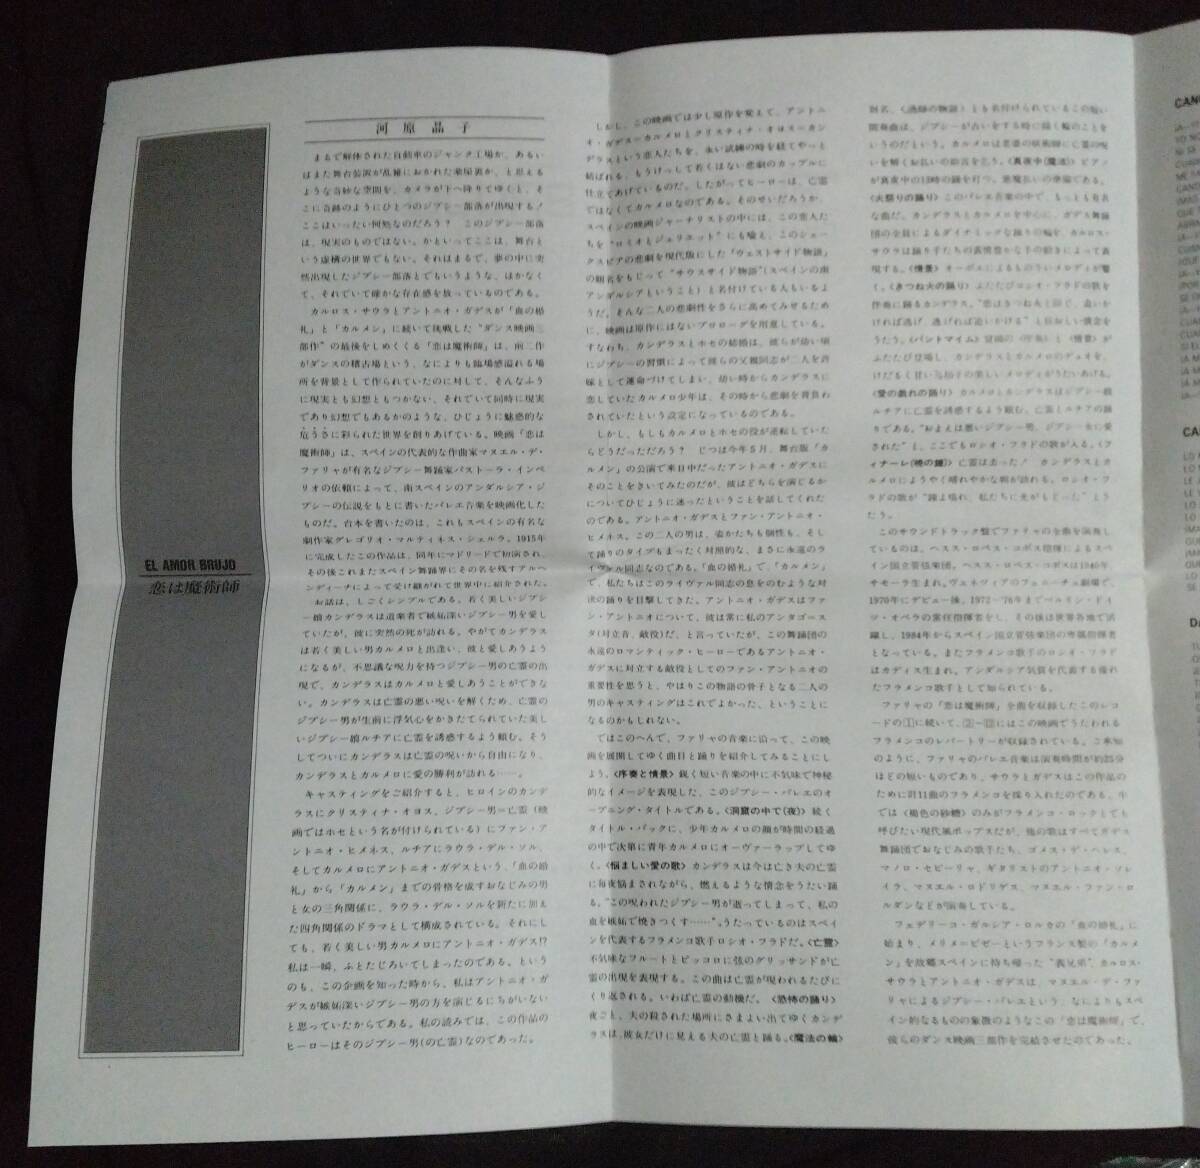 EL AMOR BRUJO
恋は魔術師
河原晶子
まるで解体された自動車のジャンク工場か、あるい
はまた舞台装置が乱雑におかれた楽屋裏か、と思える
ような奇妙な空間を、カメラが下へ降りてゆくと、そ
こに奇跡のようにひとつのジプシー部落が出現する!
ここはいったい何処なのだろう? このジプシー部落
は、現実のものではない。かといってここは、舞台と
いう虚構の世界でもない。それはまるで、夢の中に突
然出現したジプシー部落とでもいうような、はかなく
て、それでいて確かな存在感を放っているのである。
カルロス・サウラとアントニオ・ガデスが「血の婚
礼」と「カルメン」に続いて挑戦した"ダンス映画三
部作"の最後をしめくくる「恋は魔術師」は、前二作
がダンスの稽古場という、なによりも臨場感溢れる場
所を背景として作られていたのに対して、そんなふう
に現実とも幻想ともつかない、それでいて同時に現実
であり幻想でもあるかのような、ひじょうに魅惑的な
危うさに彩られた世界を創りあげている。映画「恋は
魔術師」は、スペインの代表的な作曲家マヌエル・デ・
ファリャが有名なジプシー舞踊家パストーラ・インペ
リオの依頼によって、南スペインのアンダルシア・ジ
プシーの伝説をもとに書いたバレエ音楽を映画化した
ものだ。台本を書いたのは、これもスペインの有名な
劇作家グレゴリオ・マルティネス・シェルラ。1915年
に完成したこの作品は、同年にマドリードで初演され、
その後これまたスペイン舞踊界にその名を残すアルヘ
ンティーナによって受け継がれて世界中に紹介された。
お話は、しごくシンプルである。若く美しいジプシ
ー娘カンデラスは道楽者で嫉妬深いジプシー男を愛し
ていたが、彼に突然の死が訪れる。やがてカンデラス
は若く美しい男カルメロと出逢い、彼と愛しあうよう
になるが、不思議な呪力を持つジプシー男の亡霊の出
現で、カンデラスはカルメロと愛しあうことができな
い。カンデラスは亡霊の悪い呪いを解くため、亡霊の
ジプシー男が生前に浮気心をかきたてられていた美し
いジプシー娘ルチアに亡霊を誘惑するよう頼む。そう
してついにカンデラスは亡霊の呪いから自由になり、
カンデラスとカルメロに愛の勝利が訪れる……。
キャスティングをご紹介すると、ヒロインのカンデ
ラスにクリスティナ・オヨス、ジプシー男=亡霊(映
画ではホセという名が付けられている)にファン・ア
ントニオ・ヒメネス、ルチアにラウラ・デル・ソル、
そしてカルメロにアントニオ・ガデスという、「血の婚
礼」から「カルメン」までの骨格を成すおなじみの男
と女の三角関係に、ラウラ・デル・ソルを新たに加え
た四角関係のドラマとして構成されている。それにし
ても、若く美しい男カルメロにアントニオ・ガデス!?
私は一瞬、ふとたじろいてしまったのである。という
のも、この企画を知った時から、私はアントニオ・ガ
デスが嫉妬深いジプシー男の方を演じるにちがいない
と思っていたからである。私の読みでは、この作品の
ヒーローはそのジプシー男(の亡霊)なのであった。
しかし、この映画では少し原作を変えて、アントニ
オ・ガデス=カルメロとクリスティナ・オヨス=カン
デラスという恋人たちを、永い試練の時を経てやっと
結ばれる、もうけっして若くはない悲劇のカップルに
仕立てあげているのだ。したがってヒーローは、亡霊
ではなくてカルメロなのである。そのせいだろうか、
スペインの映画ジャーナリストの中には、この恋人た
ちを"ロミオとジュリエット"にも喩え、このシェー
クスピアの悲劇を現代版にした「ウェストサイド物語」
の題名をもじって"サウスサイド物語"(スペインの南
アンダルシアということ)と名付けている人もいるよ
うだ。そんな二人の悲劇性をさらに高めてみせるため
に、映画は原作にはないプロローグを用意している。
すなわち、カンデラスとホセの結婚は、彼らが幼い頃
にジプシーの習慣によって彼らの父親同志が二人を許
嫁として運命づけてしまい、幼い時からカンデラスに
恋していたカルメロ少年は、その時から悲劇を背負わ
されていたという設定になっているのである。
しかし、もしもカルメロとホセの役が逆転していた
らどうだっただろう? じつは今年5月、舞台版「カ
ルメン」の公演で来日中だったアントニオ・ガデスに
そのことをきいてみたのだが、彼はどちらを演じるか
についてひじょうに迷ったということを話してくれた
のである。アントニオ・ガデスとファン・アントニオ・
ヒメネス。この二人の男は、姿かたちも個性も、そし
て踊りのタイプもまったく対照的な、まさに永遠のラ
イヴァル同志なのである。「血の婚礼」で、「カルメン」
で、私たちはこのライヴァル同志の息をのむような対
決の踊りを目撃してきた。アントニオ・ガデスはファ
ン・アントニオについて、彼は常に私のアンタゴニー
スタ(対立者、敵役)だ、と言っていたが、この舞踊団の
永遠のロマンティック・ヒーローであるアントニオ・
ガデスに対立する敵役としてのファン・アントニオの
重要性を思うと、やはりこの物語の骨子となる二人の
男のキャスティングはこれでよかった、ということに
なるのかもしれない。
ではこのへんで、ファリャの音楽に沿って、この映
画を展開してゆく曲目と踊りを紹介してみることにし
よう。〈序奏と情景〉鋭く短い音楽の中に不気味で神秘
的なイメージを表現した、このジプシー・バレエのオ
ープニング・タイトルである。〈洞窟の中で(夜)〉続く
タイトル・バックに、少年カルメロの顔が時間の経過
の中で次第に青年カルメロにオーヴァーラップしてゆ
く。〈悩ましい愛の歌〉カンデラスは今は亡き夫の亡霊
に毎夜悩まされながら、燃えるような情念をうたい踊
る。"この呪われたジプシー男が逝ってしまって、私の
血を嫉妬で焼きつくす……"。うたっているのはスペイ
ンを代表するフラメンコ歌手ロシオ・フラドだ。〈亡霊〉
不気味なフルートとピッコロに弦のグリッサンドが亡
霊の出現を表現する。この曲は亡霊が現われるたびに
くり返される。いわば亡霊の動機だ。〈恐怖の踊り〉
夜ごと、夫の殺された場所にさまよい出てゆくカンデ
ラスは、彼女だけに見える夫の亡霊と踊る。〈魔法の輪〉
別名、〈漁師の物語〉とも名付けられているこの短い
間奏曲は、ジプシーが占いをする時に描く輪のことを
いうのだという。カルメロは老婆の妖術師に亡霊の呪
いを解くお払いの助言を乞う。〈真夜中(魔法)〉ピアノ
が真夜中の12時の鐘を打つ。悪魔払いの準備である。
〈火祭りの踊り〉このバレエ音楽の中で、もっとも有名
な曲だ。カンデラスとカルメロを中心に、ガデス舞踊
団の全員によるダイナミックな踊りの輪を、カルロス・
サウラは踊り手たちの表情豊かな手の動きによって表
現する。〈情景〉オーボエによるものういメロディが響
く。〈きつね火の踊り〉ふたたびロシオ・フラドの歌を
伴奏に踊るカンデラス。"恋はきつね火と同じ、追いか
ければ逃げ、逃げれば追いかける"と狂おしい情念を
うたう。〈パントマイム〉冒頭の〈序奏〉と〈情景〉が
ふたたび登場し、カンデラスとカルメロのデュオを、
〈愛の戯れの踊り〉カルメロとカンデラスはジプシー娘
ルチアに亡霊を誘惑するよう頼む。亡霊とルチアの踊
りである。"おまえは悪いジプシー男、ジプシー女に愛
された"と、ここでもロシオ・フラドの歌が入る。〈フ
ィナーレ(暁の鐘)〉亡霊は去った! カンデラスとカ
ルメロにようやく晴れやかな朝が訪れる。ロシオ・フ
たう。
このサウンドトラック盤でファリャの全曲を演奏し
ているのは、ヘスス・ロペス・コボス指揮によるスペ
イン国立管弦楽団。ヘスス・ロペス・コボスは1940年、
サモーラ生まれ。ヴェネツィアのフェニーチェ劇場で、
1970年にデビュー後、1972~'76年までベルリン・ドイ
ツ・オペラの常任指揮者をし、その後は世界各地で活
躍し、1984年からスペイン国立管弦楽団の専属指揮者
となっている。またフラメンコ歌手のロシオ・フラド
はカディス生まれ。アンダルシア気質を代表する優れ
たフラメンコ歌手として知られている。
ファリャの「恋は魔術師」を全曲収録したこのレコ
フラメンコのレパートリーが収録されている。ご承知
のように、ファリャのバレエ音楽は演奏時間が約25分
ほどの短いものであり、サウラとガデスはこの作品の
ために計11曲のフラメンコを採り入れたのである。中
では〈褐色の砂糖〉のみがフラメンコ・ロックとでも
呼びたい現代風ポップスだが、他の歌はすべてガデス
舞踊団でおなじみの歌手たち、ゴメス・デ・ヘレス、
マノロ・セビーリャ、ギタリストのアントニオ・ソレ
イラ、マヌエル・ロドリゲス、マヌエル・ファン・ロ
ルダンなどが演奏している。
フェデリーコ・ガルシア・ロルカの「血の婚礼」に
始まり、メリメ=ビゼーというフランス製の「カルメ
ン」を故郷スペインに持ち帰った"義兄弟"、カルロス・
サウラとアントニオ・ガデスは、マヌエル・デ・ファ
リャによるジプシー・バレエという、なによりもスペ
イン的なるものの象徴のようなこの「恋は魔術師」で、
彼らのダンス映画三部作を完結させたのであった。